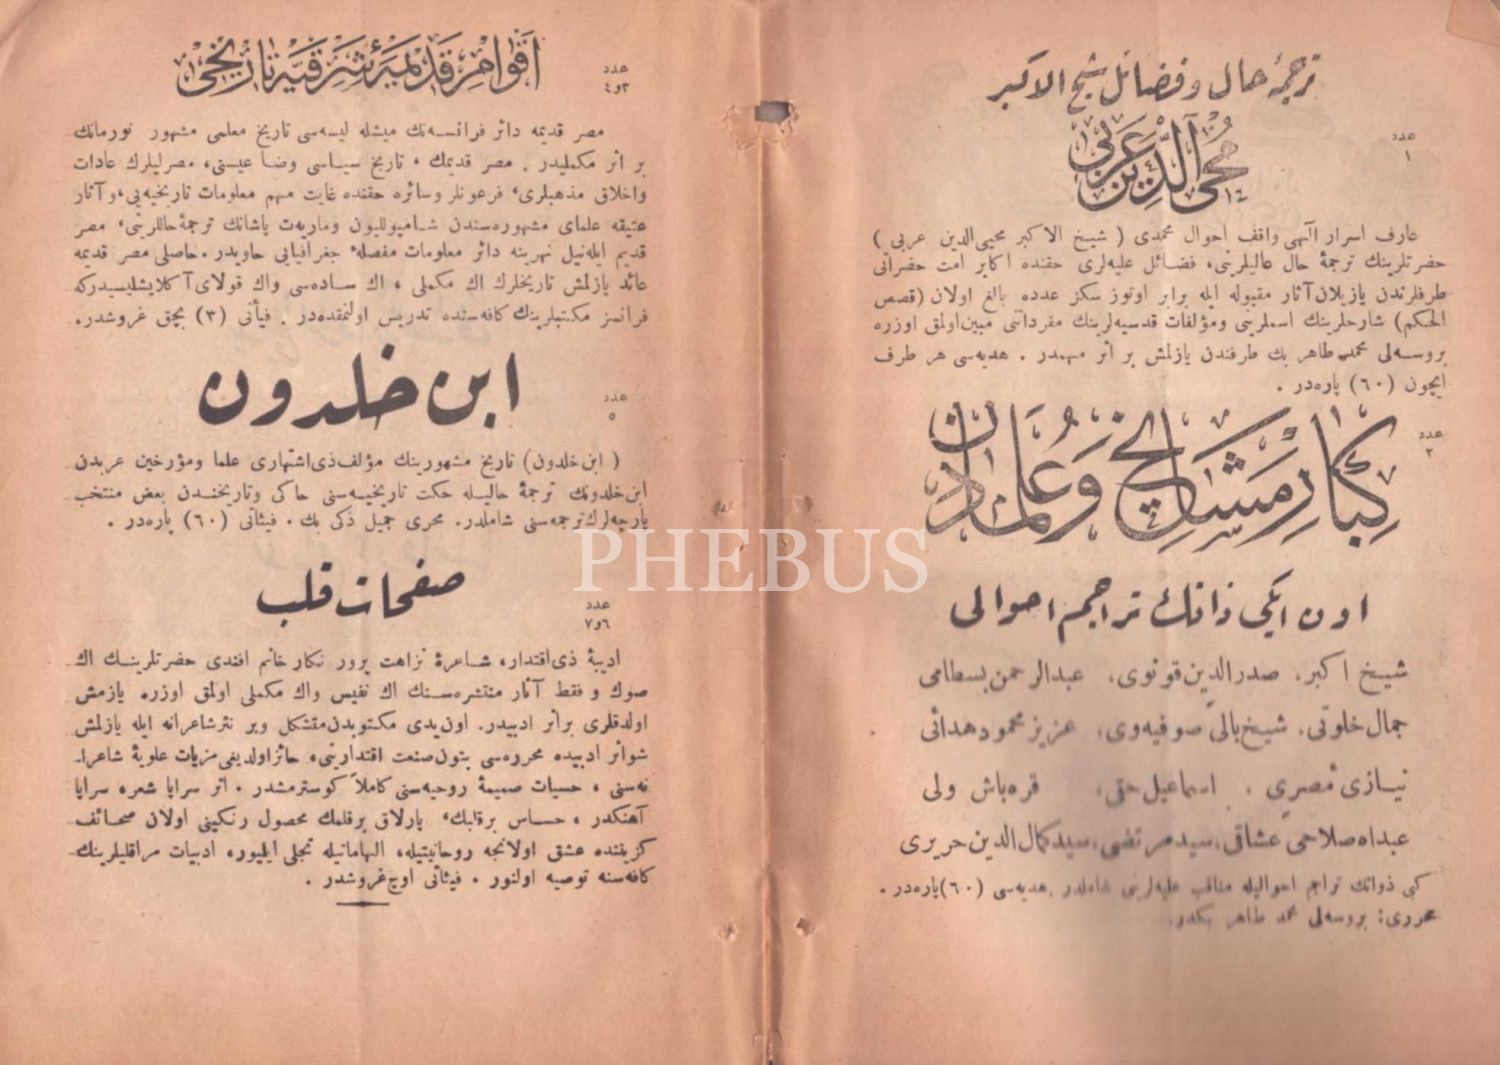 ترجمهٔ حال و فضائل شیخ الاكبر
عدد
١
محیی‌الدین عربی
عارف اسرار الهی واقف احوال محمدی ( شیخ الاكبر محیی‌الدین عربی )
حضرتلرینك ترجمهٔ حال عالیلرینی، فضائل علیه‌لری حقنده اكابر امت حضراتی
طرفلرندن یازیلان آثار مقبوله ایله برابر اوتوز سكز عدده بالغ اولان (فصص
الحكم) شارحلرینك اسملرینی ومؤلفات قدسیه‌لرینك مفرداتنی مبین‌اولمق اوزره
بروسه‌لی محمد طاهر بك طرفندن یازلمش بر اثر مهمدر . هدیه‌سی هر طرف
ایچون (٦٠) پاره‌در .
عدد
٢
كبار مشایخ و علمادن
اون ایكی ذاتك تراجم احوالی
شیخ اكبر، صدرالدین قونوی، عبدالرحمن بسطامی
جمال خلوتی، شیخ بالی صوفیه‌وی، عزیز محمود هدائی
نیازی مصری ، اسماعیل حقی، قره‌باش ولی
عبداه صلاحی عشاقی، سید مرتضی، سید كمال الدین حریری
كبی ذواتك تراجم احوالیله مناقب علیه‌لرینی شاملدر. هدیه‌سی (٦٠) پاره‌در .
محرری: بروسه‌لی محمد طاهر بكدر.
اقوام قدیمهٔ شرقیه تاریخی
عدد
٣و٤
مصر قدیمه دائر فرانسه‌نك میشله لیسه‌سی تاریخ معلمی مشهور نورمانك
بر اثر مكملیدر . مصر قدیمك ، تاریخ سیاسی وضا عیسنی، مصرلیلرك عادات
واخلاق مذهبلری، فرعونلر وسائره حقنده غایت مهم معلومات تاریخیه‌یی، وآثار
عتیقه علمای مشهوره‌سندن شامپوللیون وماریه‌ت پاشانك ترجمهٔ حاللرینی، مصر
قدیم ایله نیل نهرینه دائر معلومات مفصلهٔ جغرافیایی حاویدر. حاصلی مصر قدیمه
عائد یازلمش تاریخلرك اك مكملی ، اك ساده‌سی واك قولای آكلاشیلیسیدركه
فرانسز مكتبلرینك كافه‌سنده تدریس اولنمقده‌در . فیأتی (٣) بچق غروشدر.
ابن خلدون
عدد
٥
( ابن خلدون) تاریخ مشهورینك مؤلف ذی‌اشتهاری علما ومؤرخین عربدن
ابن خلدونك ترجمهٔ حالیله حكت تاریخیه‌سنی حاكی وتاریخندن بعض منتخب
پارچه‌لرك ترجمه‌سنی شاملدر. محرری جمیل ذكی بك . فیئاتی (٦٠) پاره‌در .
صفحات قلب
عدد
٦و٧
ادیبهٔ ذی‌اقتدار، شاعرهٔ نزاهت پرور نكار خانم افندی حضرتلرینك اك
صوك و فقط آثار منتشره‌سنك اك نفیس واك مكملی اولمق اوزره یازمش
اولدقلری بر اثر ادبیدر. اون‌یدی مكتوبدن متشكل وبر نثر شاعرانه ایله یازلمش
شواثر ادبیده محرره‌سی بتون صنعت اقتدارینی، حائز اولدیغی مزیات علویهٔ شاعرا-
نه‌سنی ، حسیات صمیمهٔ روحیه‌سنی كاملاً كوسترمشدر . اثر سراپا شعره سراپا
آهنكدر ، حساس بر قلبك، پارلاق بر قلمك محصول رنكینی اولان صحائف
كزیننده عشق اولانجه روحانیتیله، الهاماتیله تجلی ایلیور، ادبیات مراقلیلرینك
كافه‌سنه توصیه اولنور . فیئاتی اوچ غروشدر .
PHEBUS